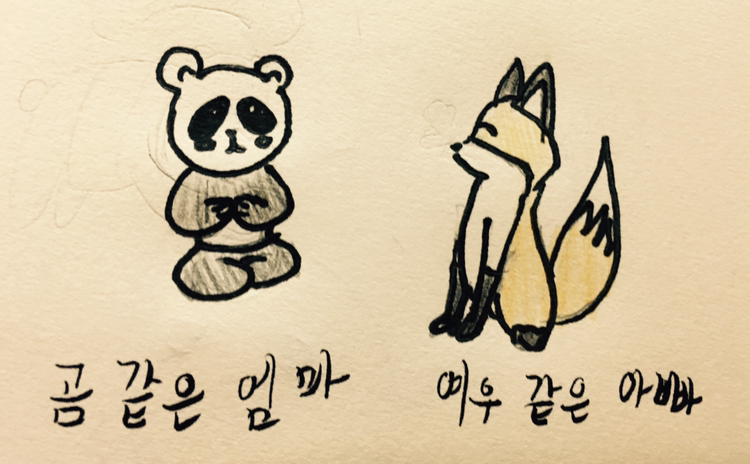 곰 같은 엄마
여우 같은 아빠